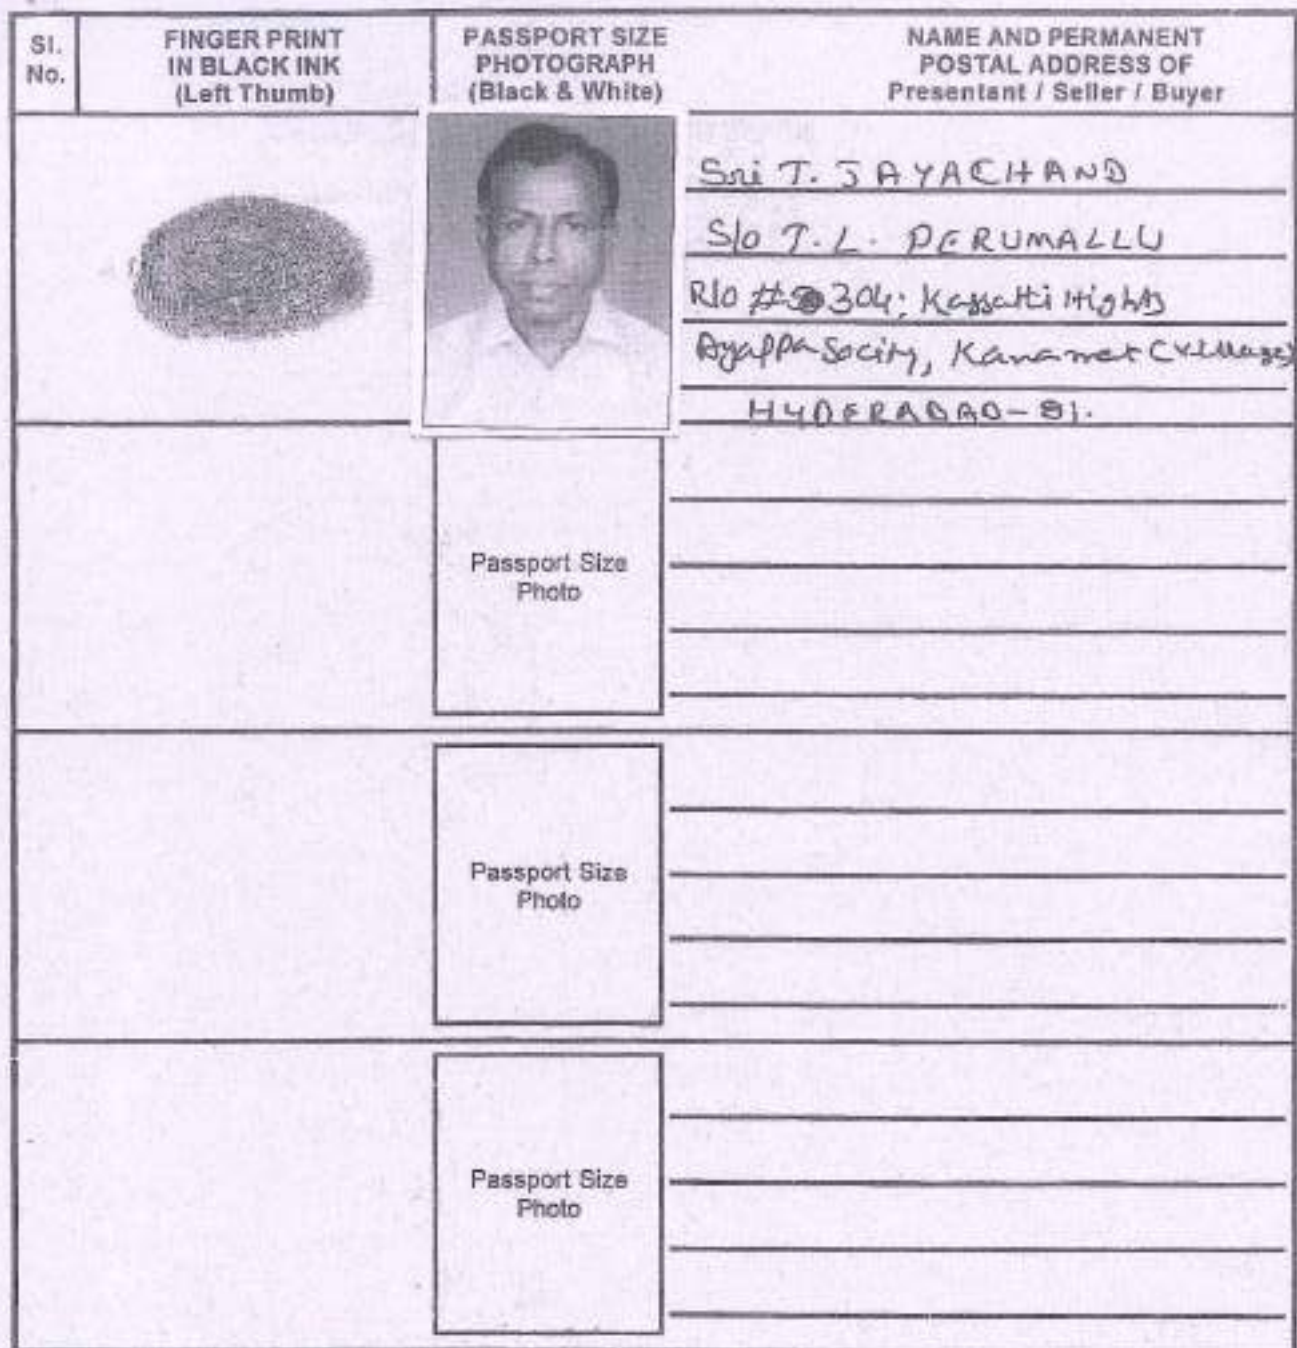 Sl.
No.
FINGER PRINT
IN BLACK INK
(Left Thumb)
PASSPORT SIZE
PHOTOGRAPH
(Black & White)
NAME AND PERMANENT
POSTAL ADDRESS OF
Presentant / Seller / Buyer
Sri T. JAYACHAND
S/o T.L. PERUMALLU
R/o # 304; Hights
Ayappa Socity, Kanamet (village)
HYDERABAD-81.
Passport Size
Photo
Passport Size
Photo
Passport Size
Photo